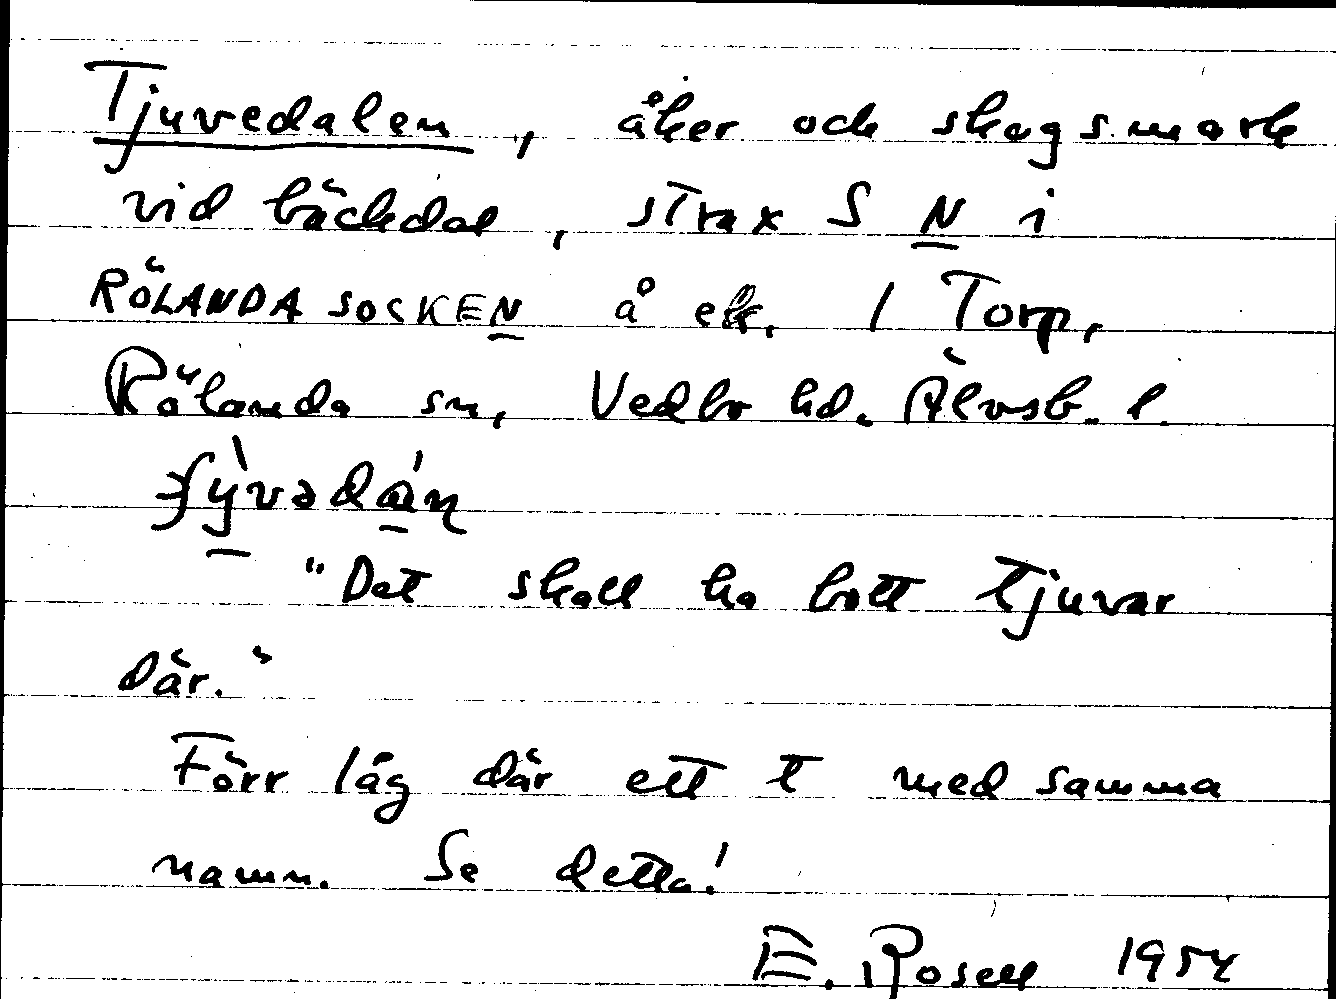 Tjuvedalen, åker och skogsmark
vid bäckdal, strax S N i
RÖLANDA SOCKEN å ek. 1 Torp,
Rölanda sn, Vedbo hd. Älvsb. l.
"Det skall ha bott tjuvar
där."
Förr låg där ett t med samma
namn. Se detta!
E. Rosell 1954